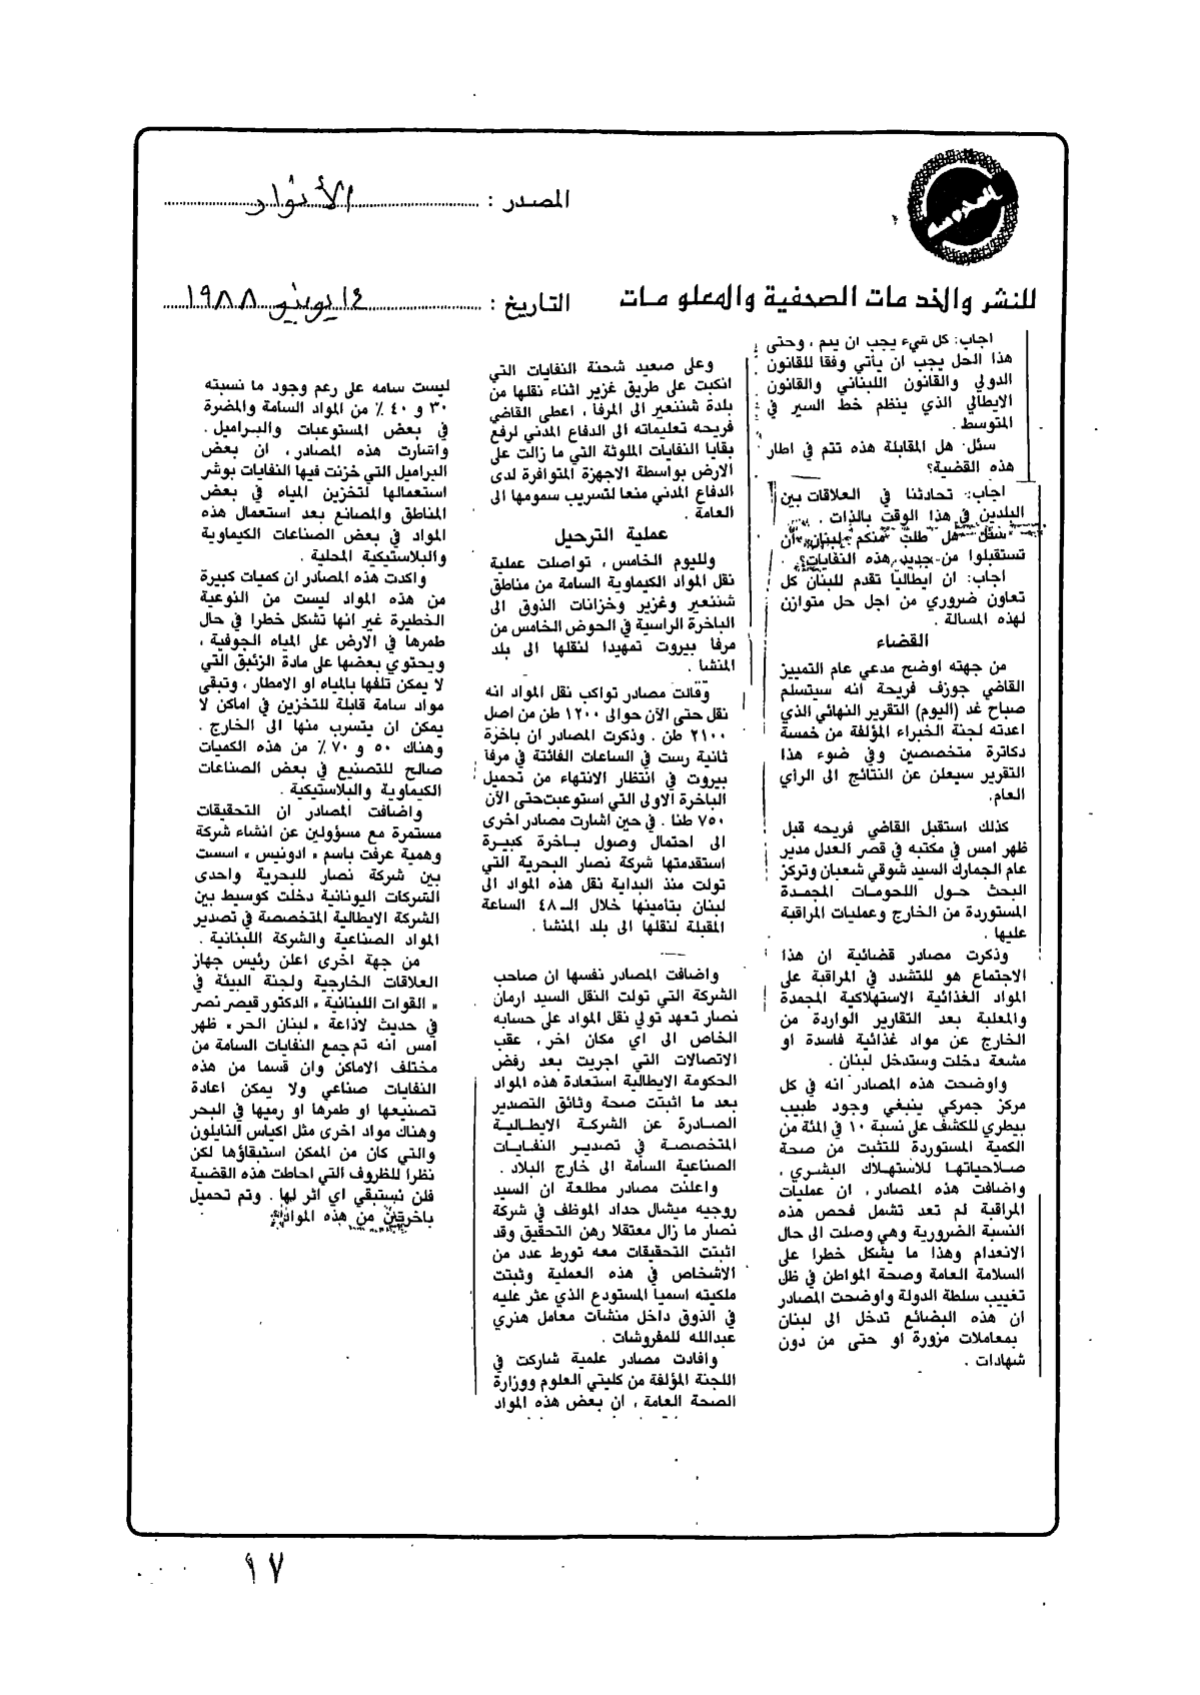 المحروسة
المصدر : الأنوار
للنشر والخدمات الصحفية والمعلومات
التاريخ : ١٤ يونيو ١٩٨٨
اجاب: كل شيء يجب ان يتم ، وحتى
هذا الحل يجب ان يأتي وفقا للقانون
الدولي والقانون اللبناني والقانون
الايطالي الذي ينظم خط السير في
المتوسط .
سئل: هل المقابلة هذه تتم في اطار
هذه القضية؟
اجاب: تحادثنا في العلاقات بين
البلدين في هذا الوقت بالذات .
سئل هل طلب منكم لبنان أن
تستقبلوا من جديد هذه النفايات؟
اجاب: ان ايطاليا تقدم للبنان كل
تعاون ضروري من اجل حل متوازن
لهذه المسالة .
القضاء
من جهته اوضح مدعي عام التمييز
القاضي جوزف فريحة أنه سيتسلم
صباح غد (اليوم) التقرير النهائي الذي
اعدته لجنة الخبراء المؤلفة من خمسة
دكاترة متخصصين وفي ضوء هذا
التقرير سيعلن عن النتائج الى الرأي
العام.
كذلك استقبل القاضي فريحه قبل
ظهر امس في مكتبه في قصر العدل مدير
عام الجمارك السيد شوقي شعبان وتركز
البحث حول اللحومات المجمدة
المستوردة من الخارج وعمليات المراقبة
عليها .
وذكرت مصادر قضائية ان هذا
الاجتماع هو للتشدد في المراقبة على
المواد الغذائية الاستهلاكية المجمدة
والمعلبة بعد التقارير الواردة من
الخارج عن مواد غذائية فاسدة او
مشعة دخلت وستدخل لبنان .
واوضحت هذه المصادر انه في كل
مركز جمركي ينبغي وجود طبيب
بيطري للكشف على نسبة ١٠ في المئة من
الكمية المستوردة للتثبت من صحة
صلاحياتها للاستهلاك البشري ،
واضافت هذه المصادر، ان عمليات
المراقبة لم تعد تشمل فحص هذه
النسبة الضرورية وهي وصلت الى حال
الانعدام وهذا ما يشكل خطرا على
السلامة العامة وصحة المواطن في ظل
تغييب سلطة الدولة واوضحت المصادر
ان هذه البضائع تدخل الى لبنان
بمعاملات مزورة او حتى من دون
شهادات .
وعلى صعيد شحنة النفايات التي
انكبت على طريق غزير اثناء نقلها من
بلدة شننعير الى المرفأ ، اعطى القاضي
فريحه تعليماته الى الدفاع المدني لرفع
بقايا النفايات الملوثة التي ما زالت على
الارض بواسطة الاجهزة المتوافرة لدى
الدفاع المدني منعا لتسريب سمومها الى
العامة .
عملية الترحيل
ولليوم الخامس ، تواصلت عملية
نقل المواد الكيماوية السامة من مناطق
شننعير وغزير وخزانات الذوق الى
الباخرة الراسية في الحوض الخامس من
مرفا بيروت تمهيدا لنقلها الى بلد
المنشا .
وقالت مصادر تواكب نقل المواد انه
نقل حتى الآن حوالى ١٢٠٠ طن من اصل
٢١٠٠ طن . وذكرت المصادر ان باخرة
ثانية رست في الساعات الفائتة في مرفأ
بيروت في انتظار الانتهاء من تحميل
الباخرة الاولى التي استوعبت حتى الآن
٧٥٠ طنا . في حين اشارت مصادر اخرى
الى احتمال وصول باخرة كبيرة
استقدمتها شركة نصار البحرية التي
تولت منذ البداية نقل هذه المواد الى
لبنان بتامينها خلال الـ ٤٨ الساعة
المقبلة لنقلها الى بلد المنشا .
واضافت المصادر نفسها ان صاحب
الشركة التي تولت النقل السيد ارمان
نصار تعهد تولي نقل المواد على حسابه
الخاص الى اي مكان اخر ، عقب
الاتصالات التي اجريت بعد رفض
الحكومة الايطالية استعادة هذه المواد
بعد ما اثبتت صحة وثائق التصدير
الصادرة عن الشركة الايطالية
المتخصصة في تصدير النفايات
الصناعية السامة الى خارج البلاد .
واعلنت مصادر مطلعة ان السيد
روجيه ميشال حداد الموظف في شركة
نصار ما زال معتقلا رهن التحقيق وقد
اثبتت التحقيقات معه تورط عدد من
الاشخاص في هذه العملية وثبتت
ملكيته اسمياً المستودع الذي عثر عليه
في الذوق داخل منشآت معامل هنري
عبدالله للمفروشات .
وافادت مصادر علمية شاركت في
اللجنة المؤلفة من كليتي العلوم ووزارة
الصحة العامة ، ان بعض هذه المواد
ليست سامه على رغم وجود ما نسبته
٣٠ و ٤٠ ٪ من المواد السامة والمضرة
في بعض المستوعبات والبراميل .
واشارت هذه المصادر ، ان بعض
البراميل التي خزنت فيها النفايات بوشر
استعمالها لتخزين المياه في بعض
المناطق والمصانع بعد استعمال هذه
المواد في بعض الصناعات الكيماوية
والبلاستيكية المحلية .
واكدت هذه المصادر ان كميات كبيرة
من هذه المواد ليست من النوعية
الخطيرة غير انها تشكل خطرا في حال
طمرها في الارض على المياه الجوفية ،
ويحتوي بعضها على مادة الزئبق التي
لا يمكن تلفها بالمياه او الامطار ، وتبقى
مواد سامة قابلة للتخزين في اماكن لا
يمكن ان يتسرب منها الى الخارج .
وهناك ٥٠ و ٧٠ ٪ من هذه الكميات
صالح للتصنيع في بعض الصناعات
الكيماوية والبلاستيكية .
واضافت المصادر ان التحقيقات
مستمرة مع مسؤولين عن انشاء شركة
وهمية عرفت باسم « ادونيس » اسست
بين شركة نصار للبحرية واحدى
الشركات اليونانية دخلت كوسيط بين
الشركة الايطالية المتخصصة في تصدير
المواد الصناعية والشركة اللبنانية .
من جهة اخرى اعلن رئيس جهاز
العلاقات الخارجية ولجنة البيئة في
« القوات اللبنانية » الدكتور قيصر نصر
في حديث لاذاعة « لبنان الحر » ظهر
امس انه تم جمع النفايات السامة من
مختلف الاماكن وان قسما من هذه
النفايات صناعي ولا يمكن اعادة
تصنيعها او طمرها او رميها في البحر
وهناك مواد اخرى مثل اكياس النايلون
والتي كان من الممكن استبقاؤها لكن
نظرا للظروف التي احاطت هذه القضية
فلن نستبقي اي اثر لها . وتم تحميل
باخرتين من هذه المواد
١٧